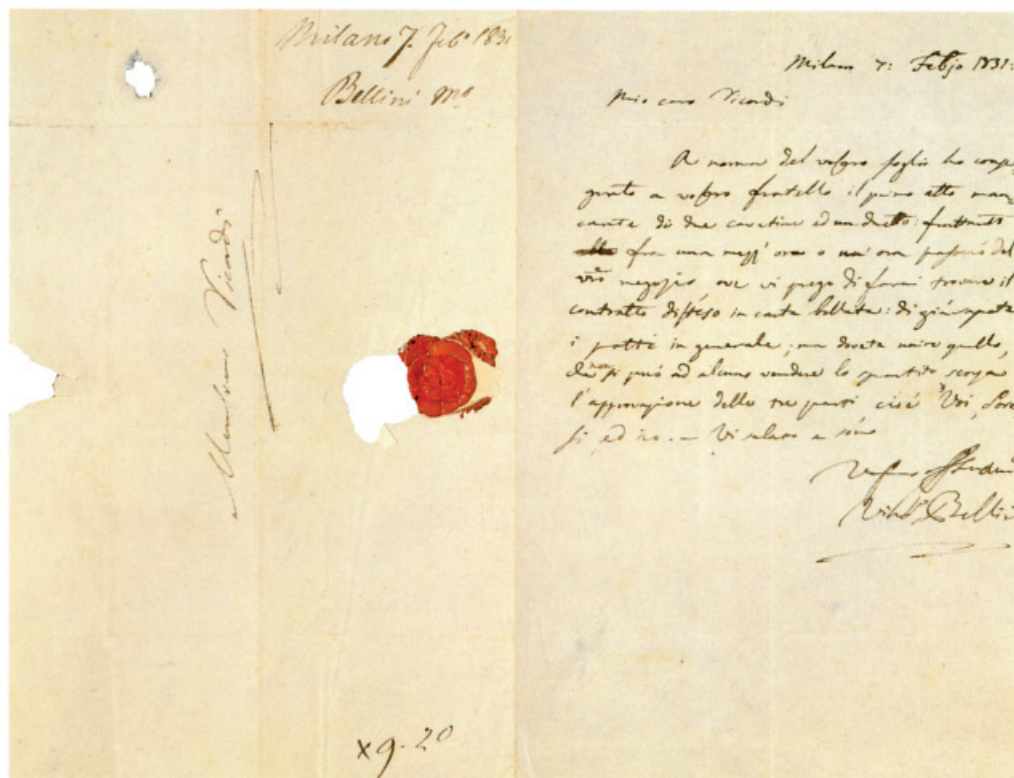 Milano 7. Feb° 1831
Bellini M°
Ricordi
x 9-20
Milano 7: Febjo 1831:
Mio caro Ricordi
A norma del vostro foglio ho conse-
gnato a vostro fratello il primo atto man-
cante di due cavatine ed un duetto:
fra una mezz' ora o un' ora passerò del
vro negozio ove vi prego di farmi trovare il
contratto disteso in carta bollata: di già sapete
i patti in generale; ma dovete unire quello,
che non si può ad alcuno vendere lo spartito senza
l'approvazione delle tre parti, cioè Voi,
ed io. – Vi saluto e sono
Vostro
Bellini